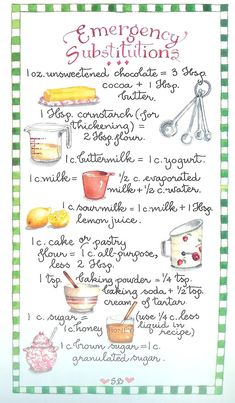 Emergency
Substitutions
1 oz. unsweetened chocolate = 3 Tbsp.
cocoa + 1 Tbsp.
butter.
1 Tbsp. cornstarch (for
thickening) =
2 Tbsp. flour.
1 c. buttermilk = 1 c. yogurt.
1 c. milk = ½ c. evaporated
milk + ½ c. water.
1 c. sour milk = 1 c. milk + 1 Tbsp.
lemon juice.
1 c. cake or pastry
flour = 1 c. all-purpose,
less 2 Tbsp.
1 tsp. baking powder = ¼ tsp.
baking soda + ½ tsp.
cream of tartar
1 c. sugar =
1 c. honey
(use ¼ c. less
liquid in
recipe)
1 c. brown sugar = 1 c.
granulated sugar.